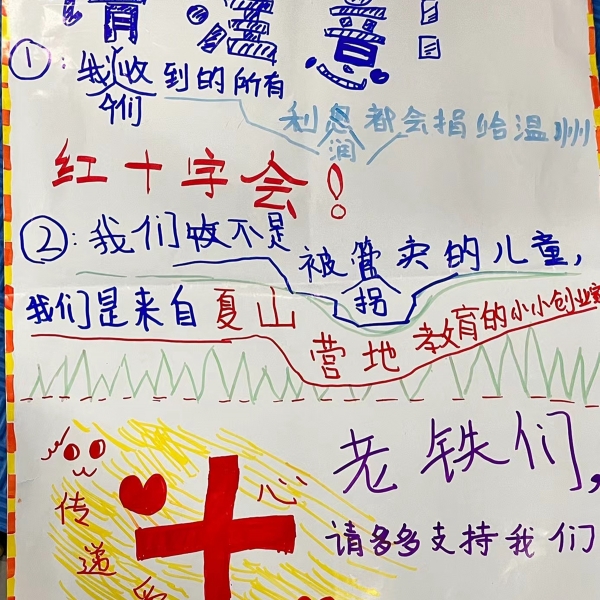 请注意:
①:我们收到的所有
利润都会捐给温州
红十字会!
②:我们不是被拐卖的儿童,
我们是来自夏山
营地教育的小小创业家
老铁们,
请多多支持我们
传递爱心